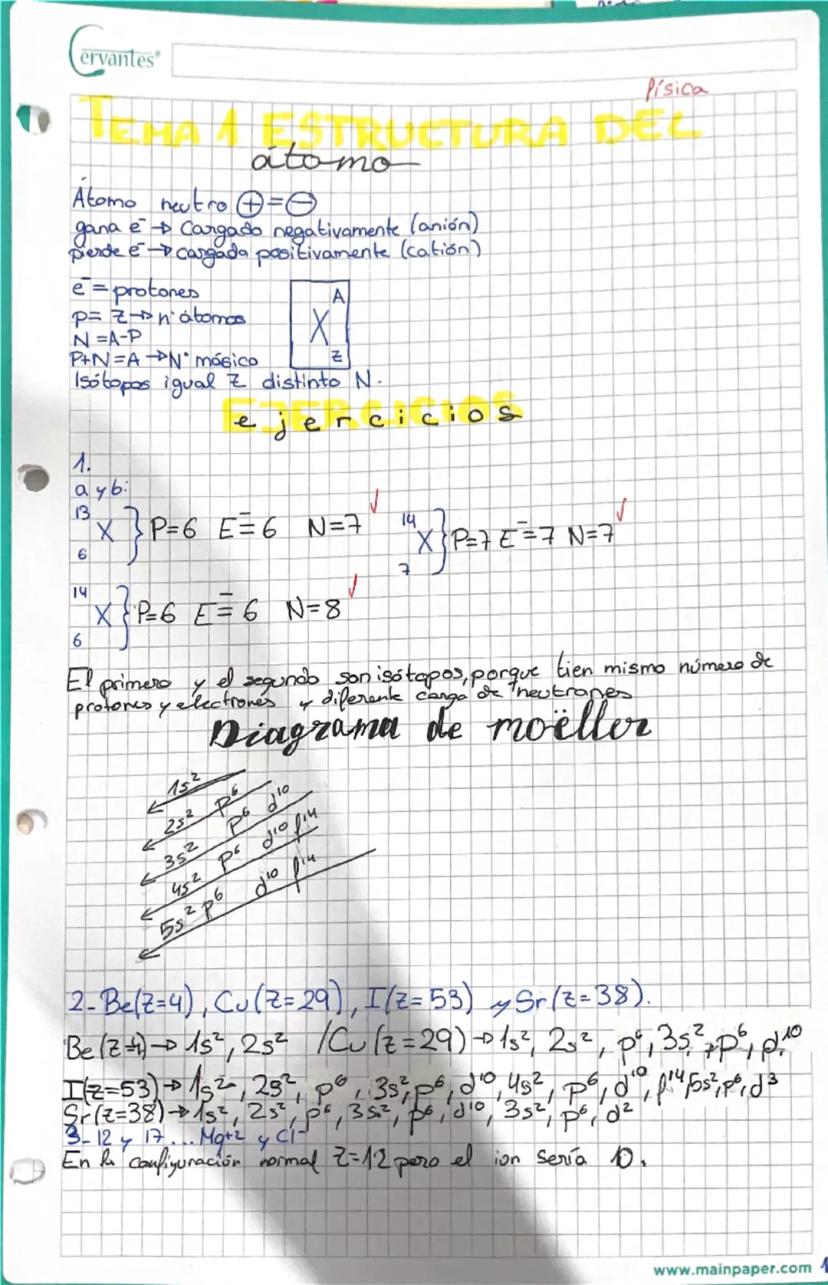 Cervantes®
física
TEMA 1 ESTRUCTURA DEL
átomo
Átomo neutro ⊕=⊖
gana e⁻ → Cargado negativamente (anión)
pierde e⁻ → cargada positivamente (catión)
e⁻ = protones
p = Z → nº átomos
N = A-P
P+N=A → Nº másico
A
X
Z
Isótopos igual Z distinto N.
EJERCICIOS
ejercicios
1.
a y b:
¹³₆X } P=6 E⁻=6 N=7 ✓ ¹⁴₇X } P=7 E⁻=7 N=7 ✓
¹⁴₆X } P=6 E⁻=6 N=8 ✓
El primero y el segundo son isótopos, porque tien mismo número de
protones y electrones y diferente carga de neutrones
Diagrama de moëller
1s²
2s² p⁶
3s² p⁶ d¹⁰
4s² p⁶ d¹⁰ f¹⁴
5s² p⁶ d¹⁰ f¹⁴
2- Be(z=4), Cu(z=29), I(z=53) y Sr(z=38).
Be(z=4) → 1s², 2s² / Cu(z=29) → 1s², 2s², p⁶, 3s², p⁶, d¹⁰
I(z=53) → 1s², 2s², p⁶, 3s², p⁶, d¹⁰, 4s², p⁶, d¹⁰, f¹⁴ 5s², p⁶, d³
Sr(z=38) → 1s², 2s², p⁶, 3s², p⁶, d¹⁰, 3s², p⁶, d²
3- 12 y 17... Mg+2 y Cl⁻
En la configuración normal Z=12 pero el ion sería 10.
www.mainpaper.com 1